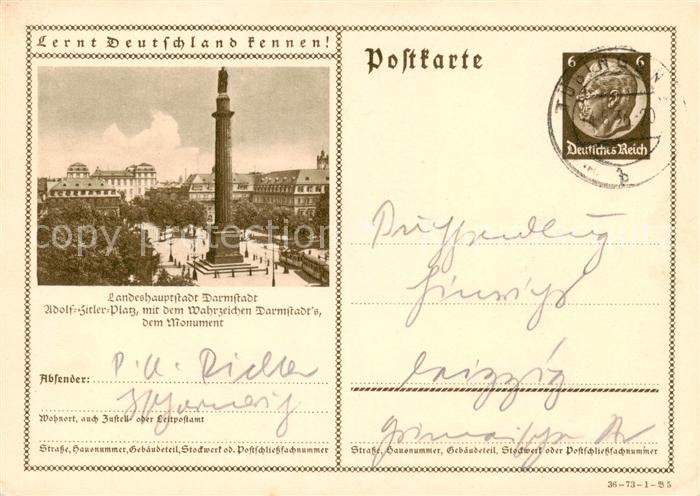 Lernt Deutschland kennen!
Landeshauptstadt Darmstadt
Adolf-Hitler-Platz, mit dem Wahrzeichen Darmstadt's,
dem Monument
Absender:
Richter
Wohnort, auch Zustell- oder Leitpostamt
Straße, Hausnummer, Gebäudeteil, Stockwerk od. Postschließfachnummer
Postkarte
6 6
Deutsches Reich
TÜBINGEN
Buchhandlung
Hinrichs
Leipzig
Grimmaische
Straße, Hausnummer, Gebäudeteil, Stockwerk oder Postschließfachnummer
36-73-1-B5